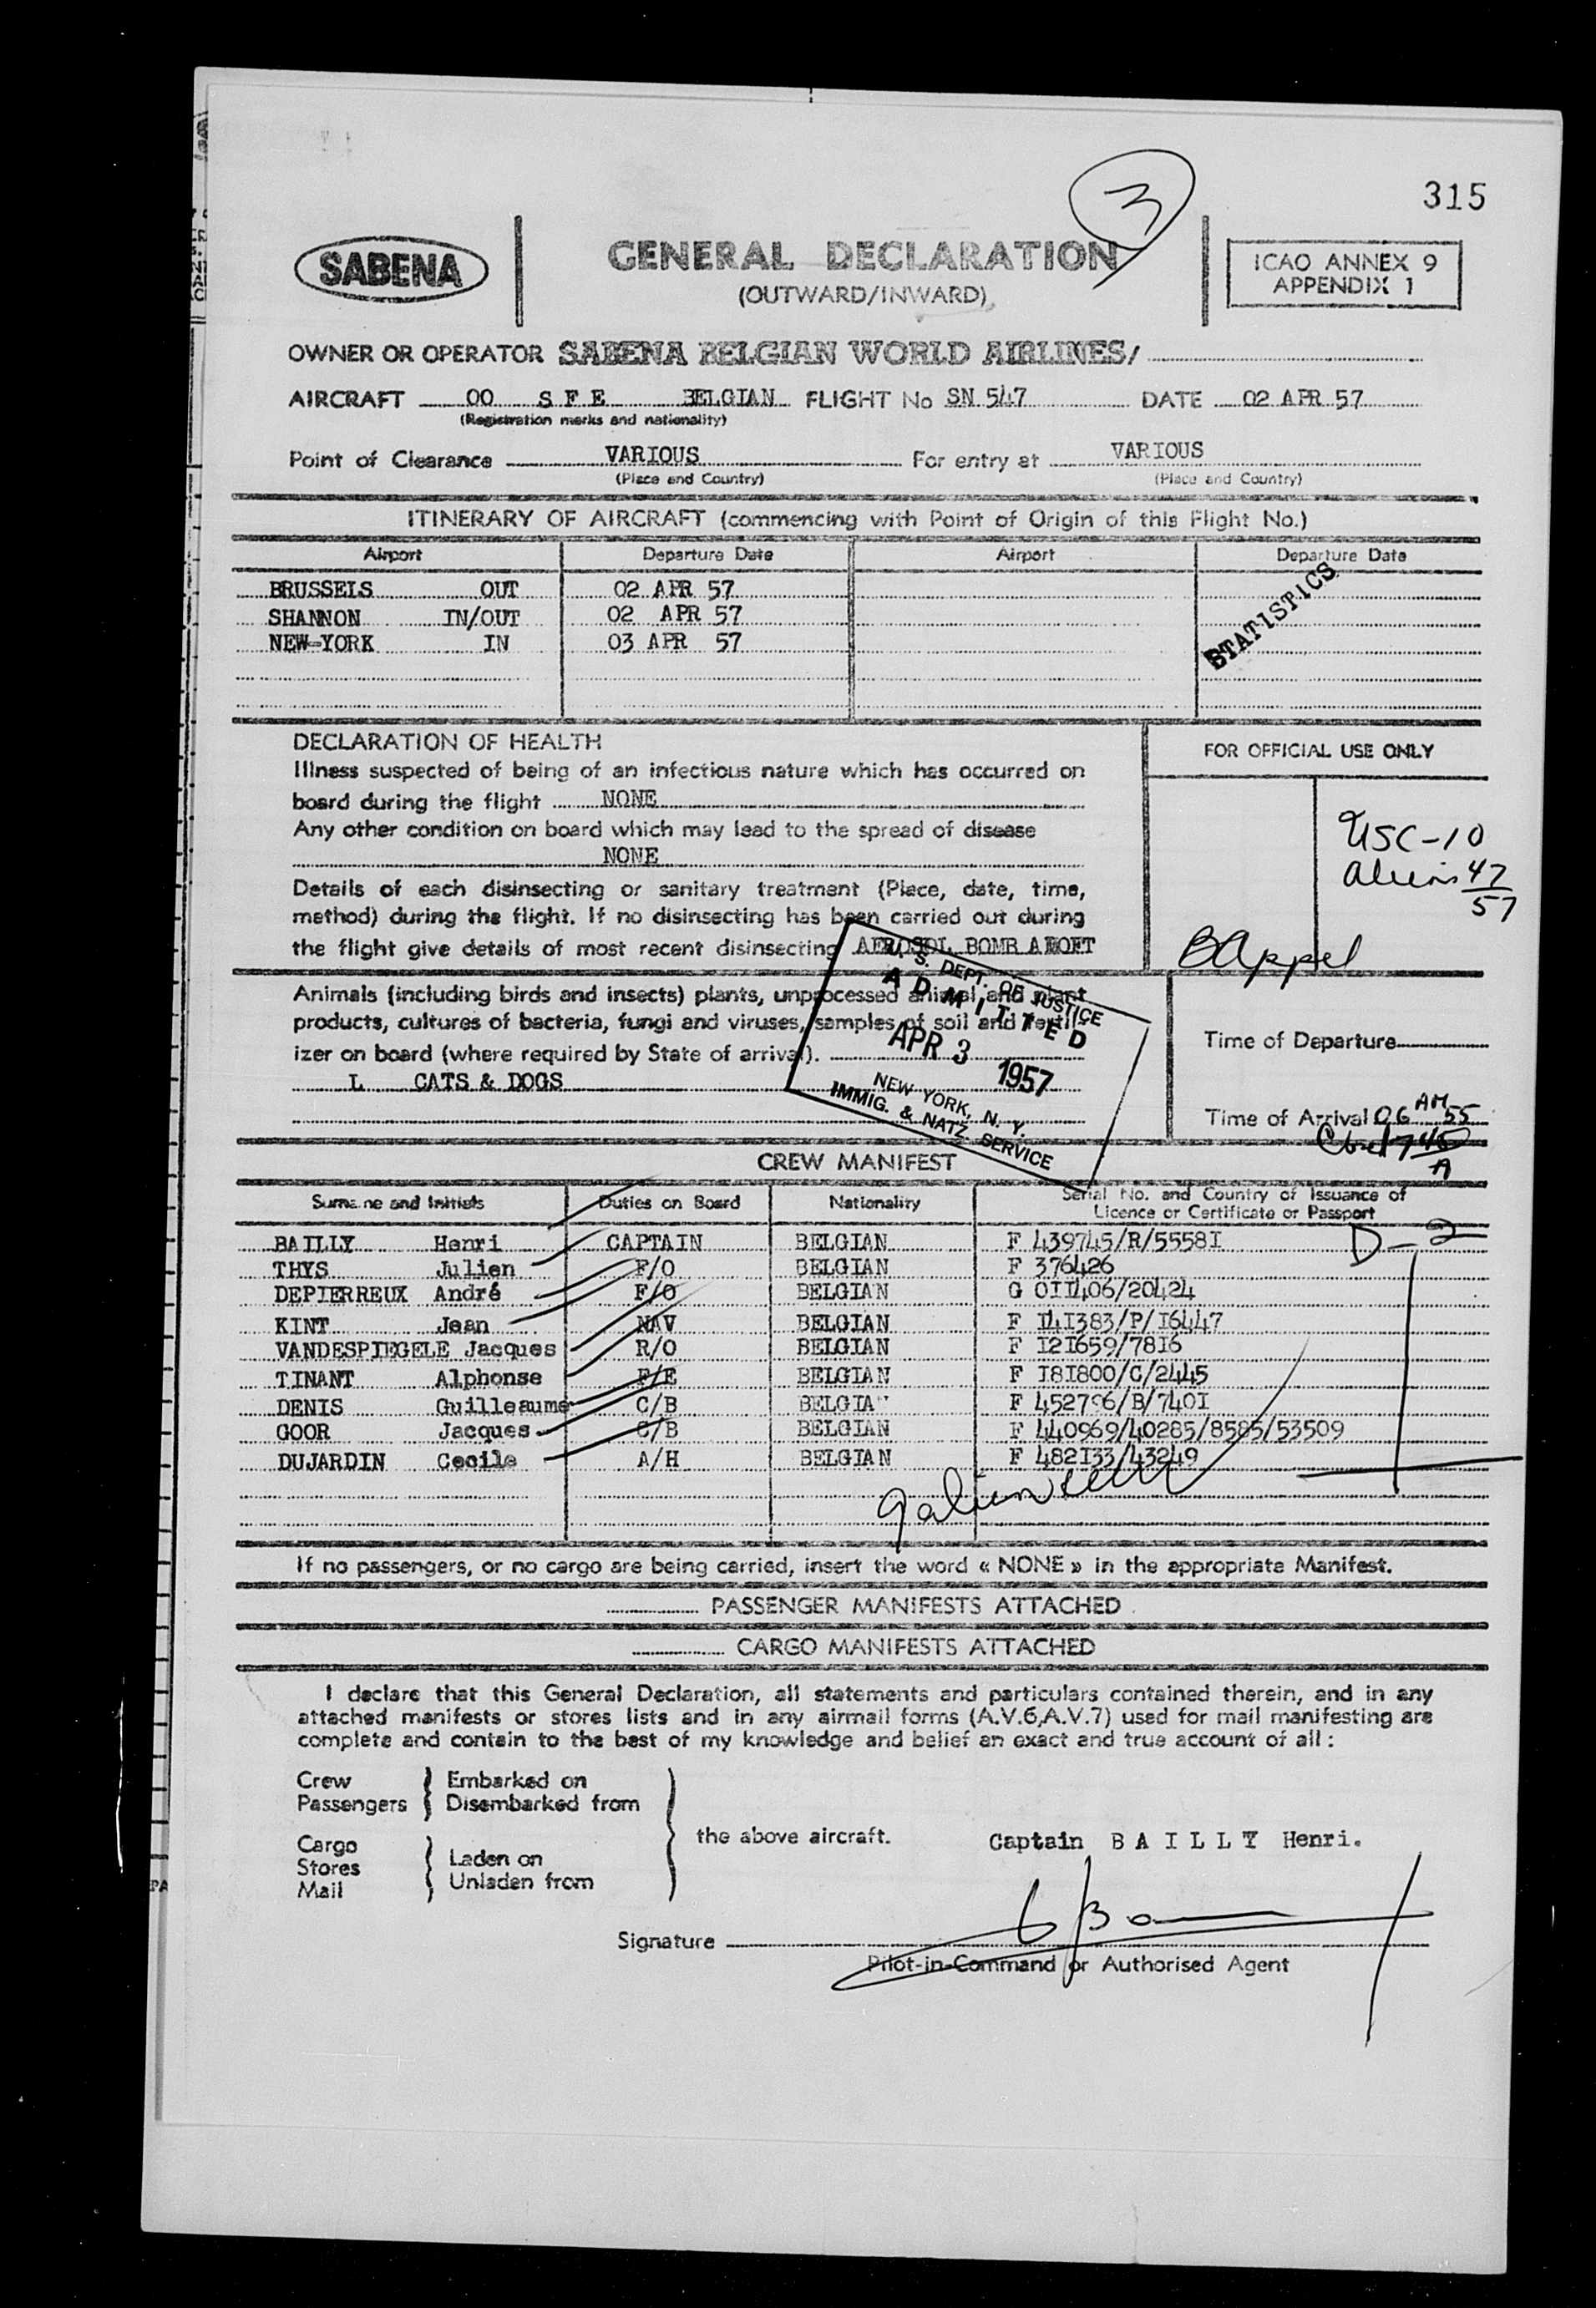 3
315
SABENA
GENERAL DECLARATION
(OUTWARD/INWARD)
ICAO ANNEX 9
APPENDIX 1
OWNER OR OPERATOR SABENA BELGIAN WORLD AIRLINES/
AIRCRAFT OO S F E BELGIAN FLIGHT No SN 547 DATE 02 APR 57
(Registration marks and nationality)
Point of Clearance VARIOUS For entry at VARIOUS
(Place and Country) (Place and Country)
ITINERARY OF AIRCRAFT (commencing with Point of Origin of this Flight No.)
Airport Departure Date Airport Departure Date
BRUSSELS OUT 02 APR 57
SHANNON IN/OUT 02 APR 57
NEW-YORK IN 03 APR 57
STATISTICS
DECLARATION OF HEALTH
FOR OFFICIAL USE ONLY
Illness suspected of being of an infectious nature which has occurred on
board during the flight NONE
Any other condition on board which may lead to the spread of disease
NONE
Details of each disinsecting or sanitary treatment (Place, date, time,
method) during the flight. If no disinsecting has been carried out during
the flight give details of most recent disinsecting AEROSOL BOMB ALOFT
USC-10
Aliens 47
57
BAppel
Animals (including birds and insects) plants, unprocessed animal and plant
products, cultures of bacteria, fungi and viruses, samples of soil and fertil-
izer on board (where required by State of arrival).
L CATS & DOGS
U. S. DEPT. OF JUSTICE
ADMITTED
APR 3 1957
NEW YORK, N. Y.
IMMIG. & NATZ. SERVICE
Time of Departure
Time of Arrival 06 AM 55
745
A
CREW MANIFEST
Surname and Initials Duties on Board Nationality Serial No. and Country of Issuance of
Licence or Certificate or Passport
BAILLY Henri CAPTAIN BELGIAN F 439745/R/5558I D-2
THYS Julien F/O BELGIAN F 376426
DEPIERREUX André F/O BELGIAN G OII406/20424
KINT Jean NAV BELGIAN F I4I383/P/I6447
VANDESPIEGELE Jacques R/O BELGIAN F I2I659/78I6
TINANT Alphonse F/E BELGIAN F I8I800/C/2445
DENIS Guilleaume C/B BELGIAN F 452796/B/740I
GOOR Jacques C/B BELGIAN F 440969/40285/8585/53509
DUJARDIN Cecile A/H BELGIAN F 482I33/43249
If no passengers, or no cargo are being carried, insert the word « NONE » in the appropriate Manifest.
PASSENGER MANIFESTS ATTACHED
CARGO MANIFESTS ATTACHED
I declare that this General Declaration, all statements and particulars contained therein, and in any
attached manifests or stores lists and in any airmail forms (A.V.6,A.V.7) used for mail manifesting are
complete and contain to the best of my knowledge and belief an exact and true account of all :
Crew Embarked on
Passengers Disembarked from
the above aircraft.
Cargo
Stores Laden on
Mail Unladen from
Captain B A I L L Y Henri.
Signature
Pilot-in-Command or Authorised Agent